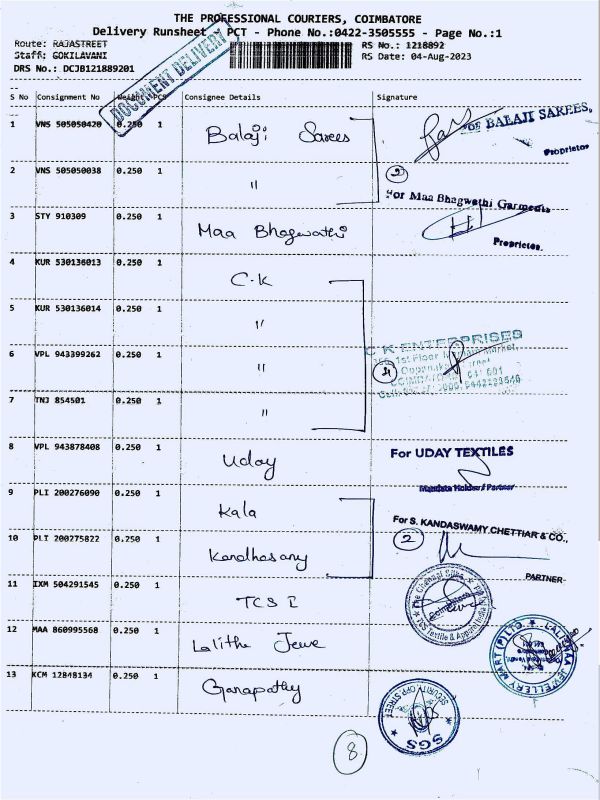 THE PROFESSIONAL COURIERS, COIMBATORE
Delivery Runsheet PCT - Phone No.:0422-3505555 - Page No.:1
Route: RAJASTREET
RS No.: 1218892
Staff: GOKILAVANI
RS Date: 04-Aug-2023
DRS No.: DCJB121889201
DOCUMENT DELIVERY
S No Consignment No Weight PCS Consignee Details Signature
1 VNS 505050420 0.250 1 Balaji Sarees
For BALAJI SAREES,
Proprietor
2 VNS 505050038 0.250 1 "
2
For Maa Bhagwathi Garments
3 STY 910309 0.250 1 Maa Bhagwathi
Proprietor.
4 KUR 530136013 0.250 1 C.K
5 KUR 530136014 0.250 1 "
6 VPL 943399262 0.250 1 "
C K ENTERPRISES
1st Floor Market,
4
7 TNJ 854501 0.250 1 "
8 VPL 943878408 0.250 1 Uday
For UDAY TEXTILES
Mandate Holder / Partner
9 PLI 200276090 0.250 1 Kala
For S. KANDASWAMY CHETTIAR & CO.,
10 PLI 200275822 0.250 1 Kandhasamy
2
PARTNER
11 IXM 504291545 0.250 1 TCS I
The Chennai Silks
TCS Textile & Apparel
Coimbatore
12 MAA 860995568 0.250 1 Lalitha Jewe
LALITHAA JEWELLERY MART (P) LTD.
13 KCM 12848134 0.250 1 Ganapathy
SECURITY OPP STREET
SGS
8